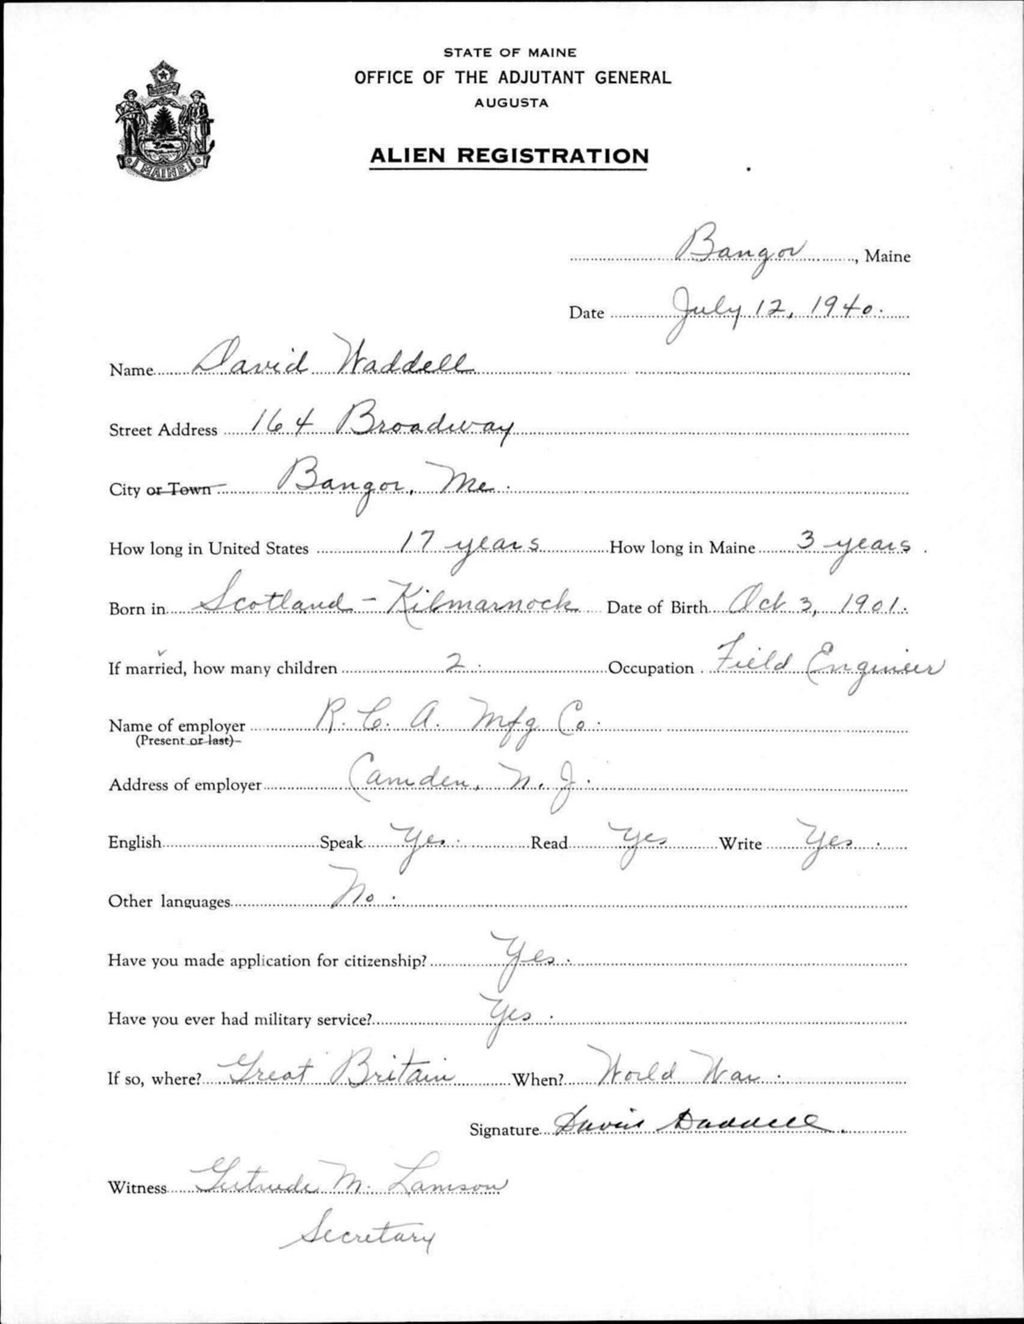 STATE OF MAINE
OFFICE OF THE ADJUTANT GENERAL
AUGUSTA
ALIEN REGISTRATION
MAINE
Bangor, Maine
Date July 12, 1940.
Name David Waddell
Street Address 164 Broadway
City or Town Bangor, Me.
How long in United States 17 years How long in Maine 3 years.
Born in Scotland - Kilmarnock Date of Birth Oct 3, 1901.
If married, how many children 2. Occupation Field Engineer
Name of employer R. C. A. Mfg Co.
(Present or last)
Address of employer Camden, N. J.
English Speak Yes. Read Yes Write Yes.
Other languages No.
Have you made application for citizenship? Yes.
Have you ever had military service? Yes.
If so, where? Great Britain When? World War.
Signature David Waddell.
Witness Gertrude M. Lamson
Secretary